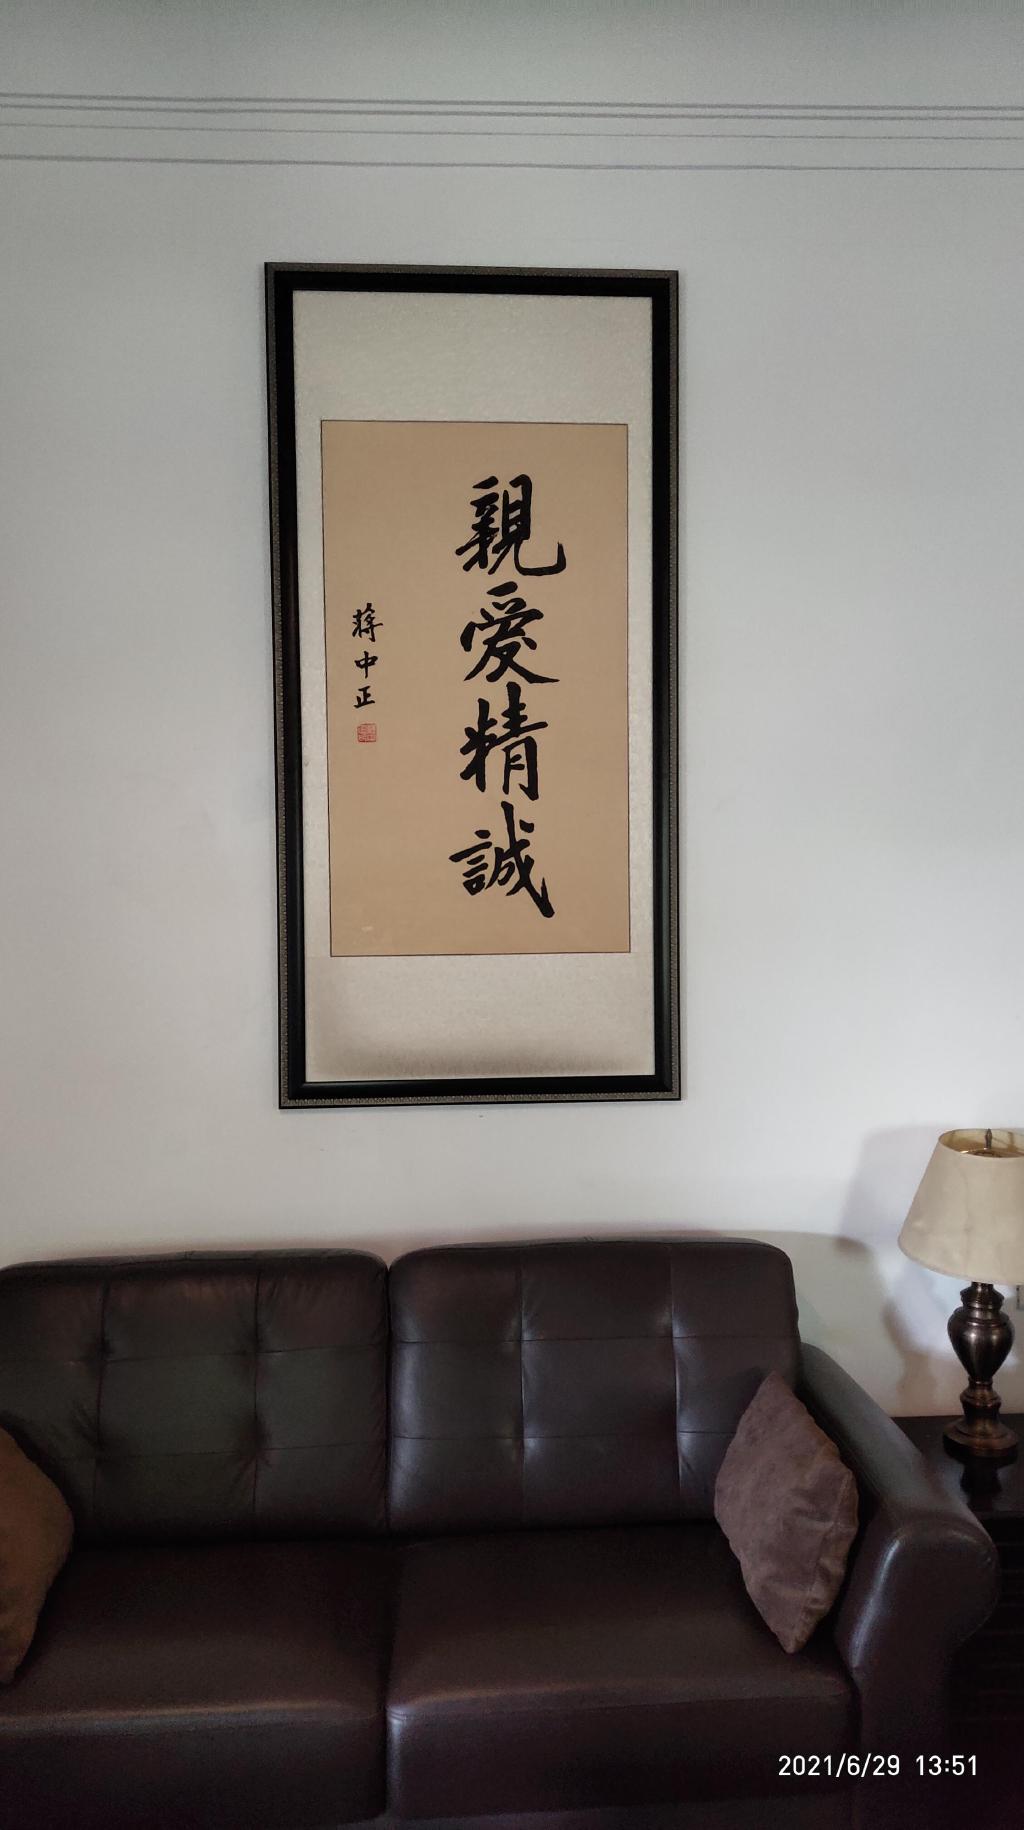 親愛精誠
蔣中正
2021/6/29 13:51